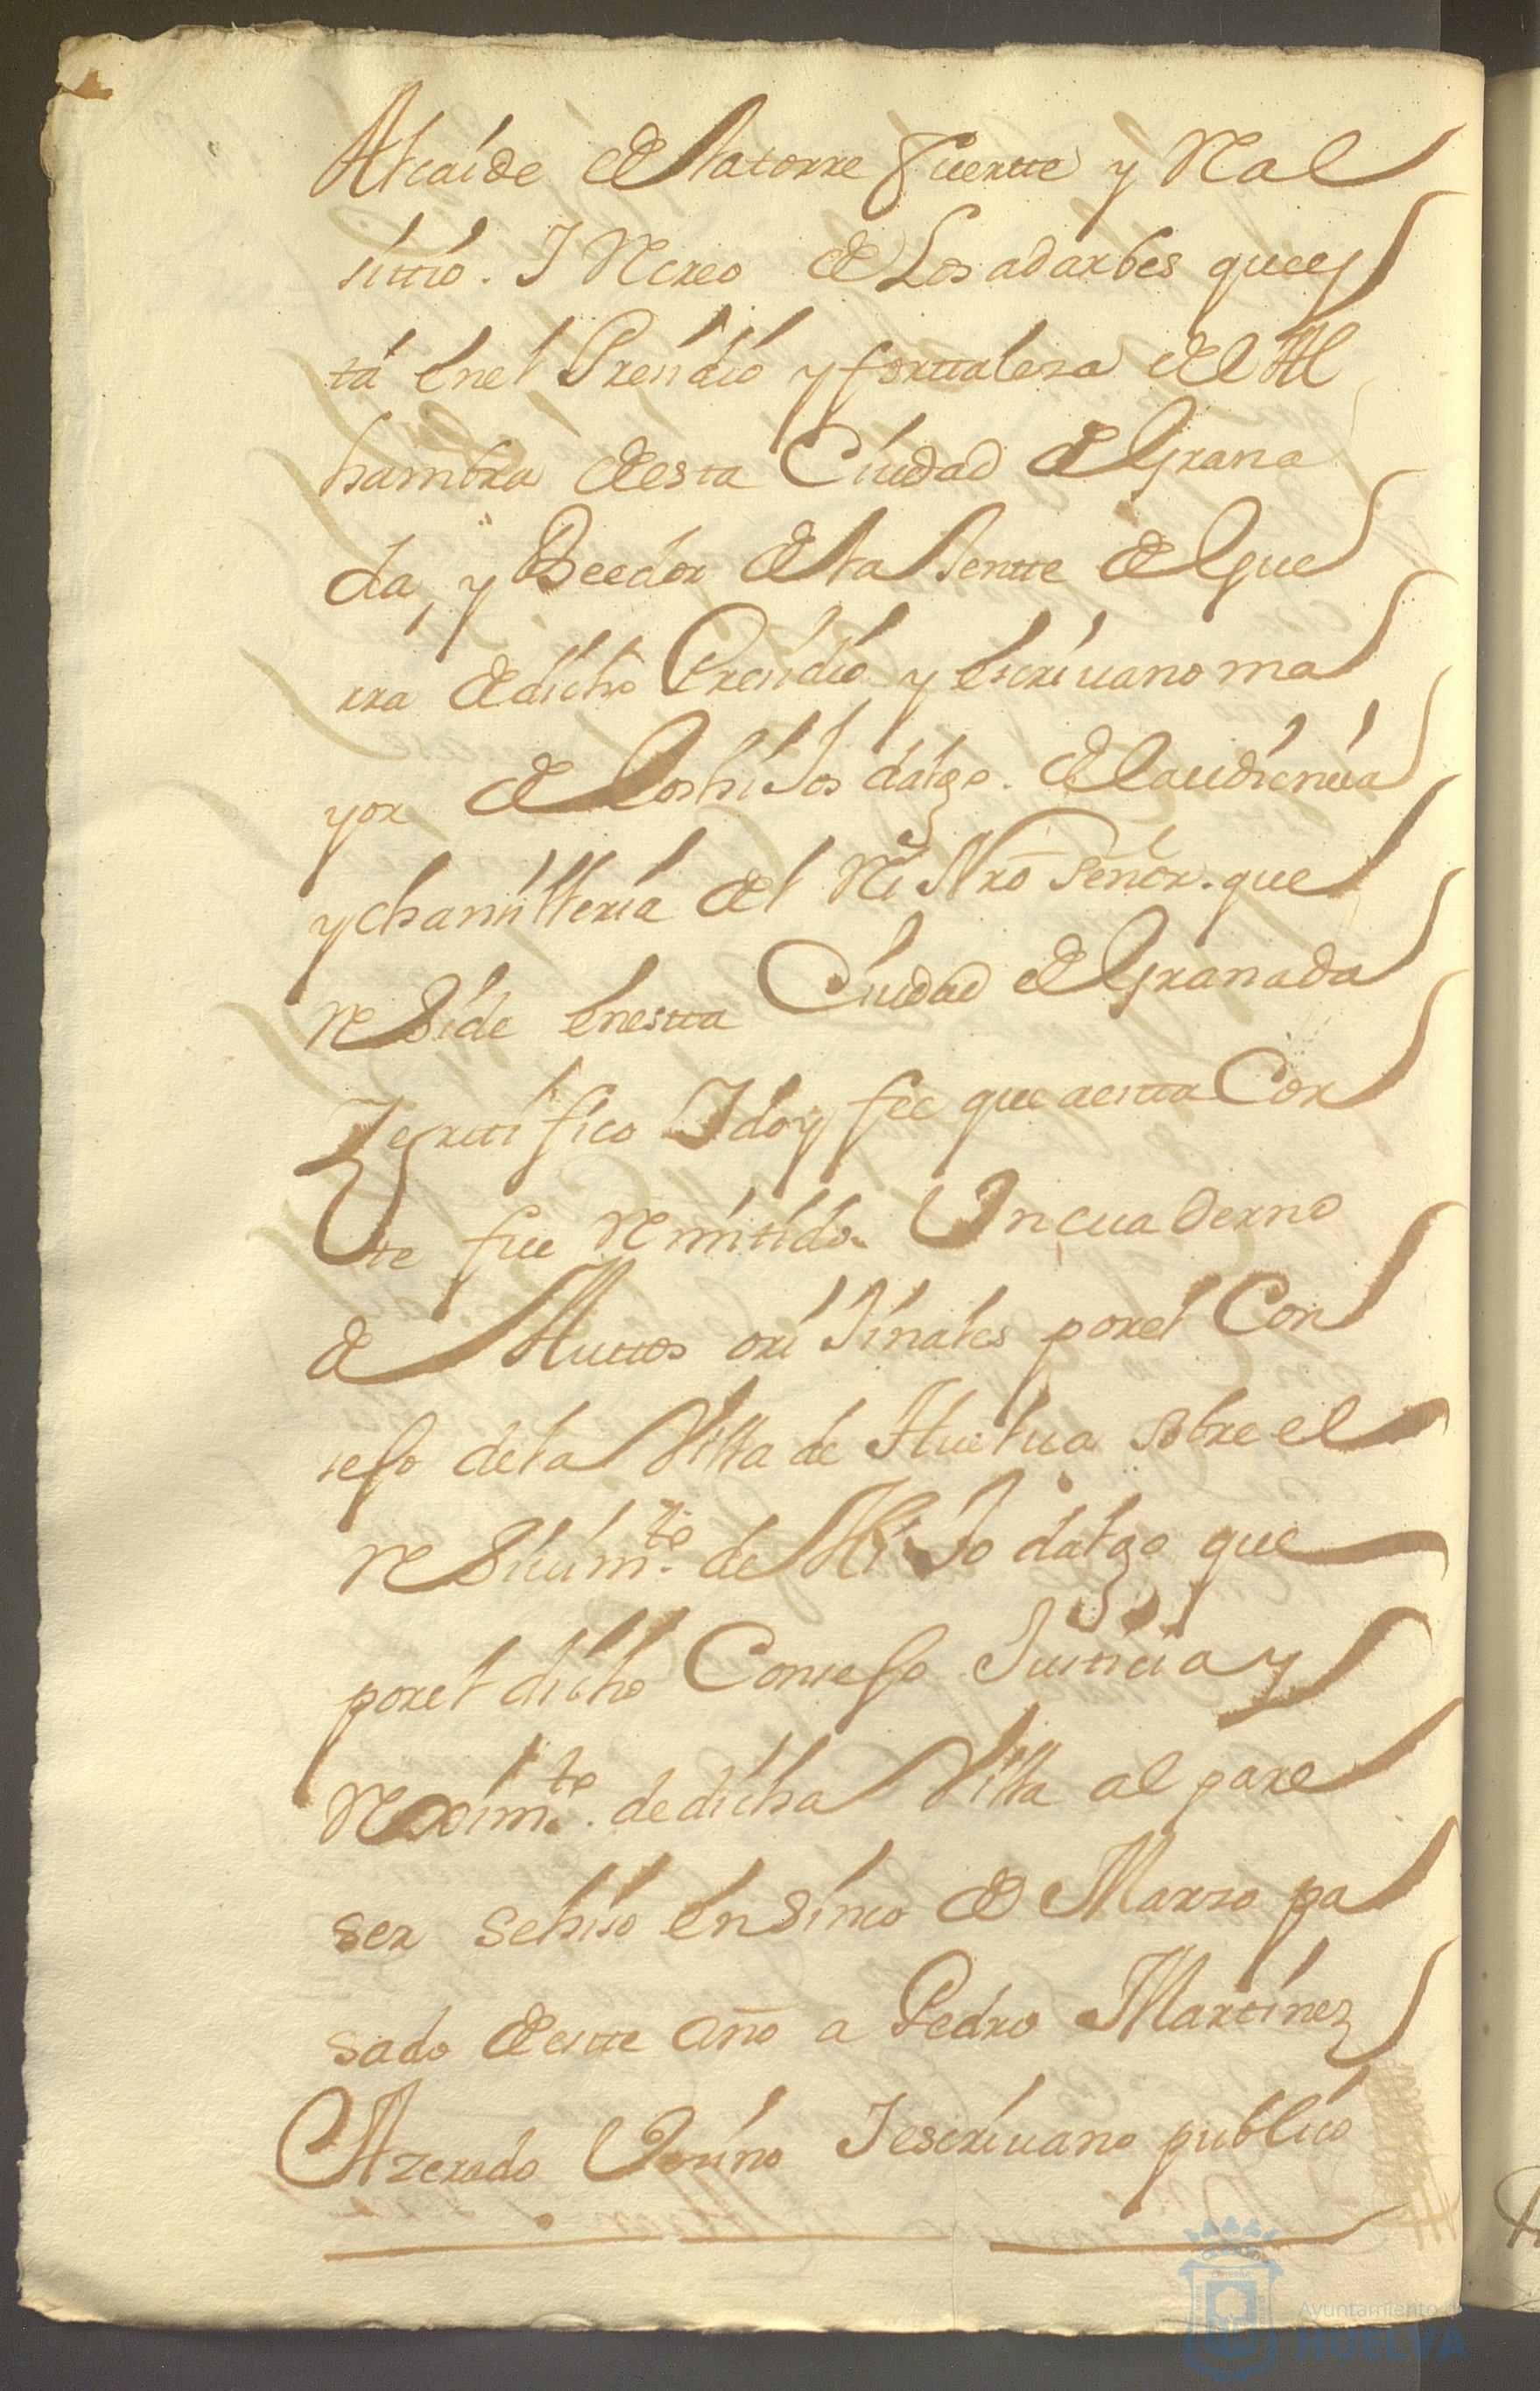 Alcaide de la torre fuertte y Real
sittio. I Recreo de Los adarbes que es
tá en el Presidio y forttalesa del Al
hambra de esta Ciudad de Grana
da, y Beedor de la Jentte de Gue
rra de dicho Presidio y escriuano ma
yor de los hiJos dalgo. de la audiencia
y chansilleria del Rei Nro Señor. que
reside en estta Ciudad de Granada
Zerttifico I doy fee que a estta Cor
te fue Remitido Un cuaderno
de Auttos oriJinales por el Con
sejo de la Villa de Huelua sobre el
resiuim.to de HiJo dalgo que
por el dicho Consejo Justicia y
Reximto. de dicha Villa al pare
ser se hiso en sinco de Marzo pa
sado de estte año a Pedro Martinez
Azeredo Vesino I escriuano publico
Ayuntamiento de
HUELVA